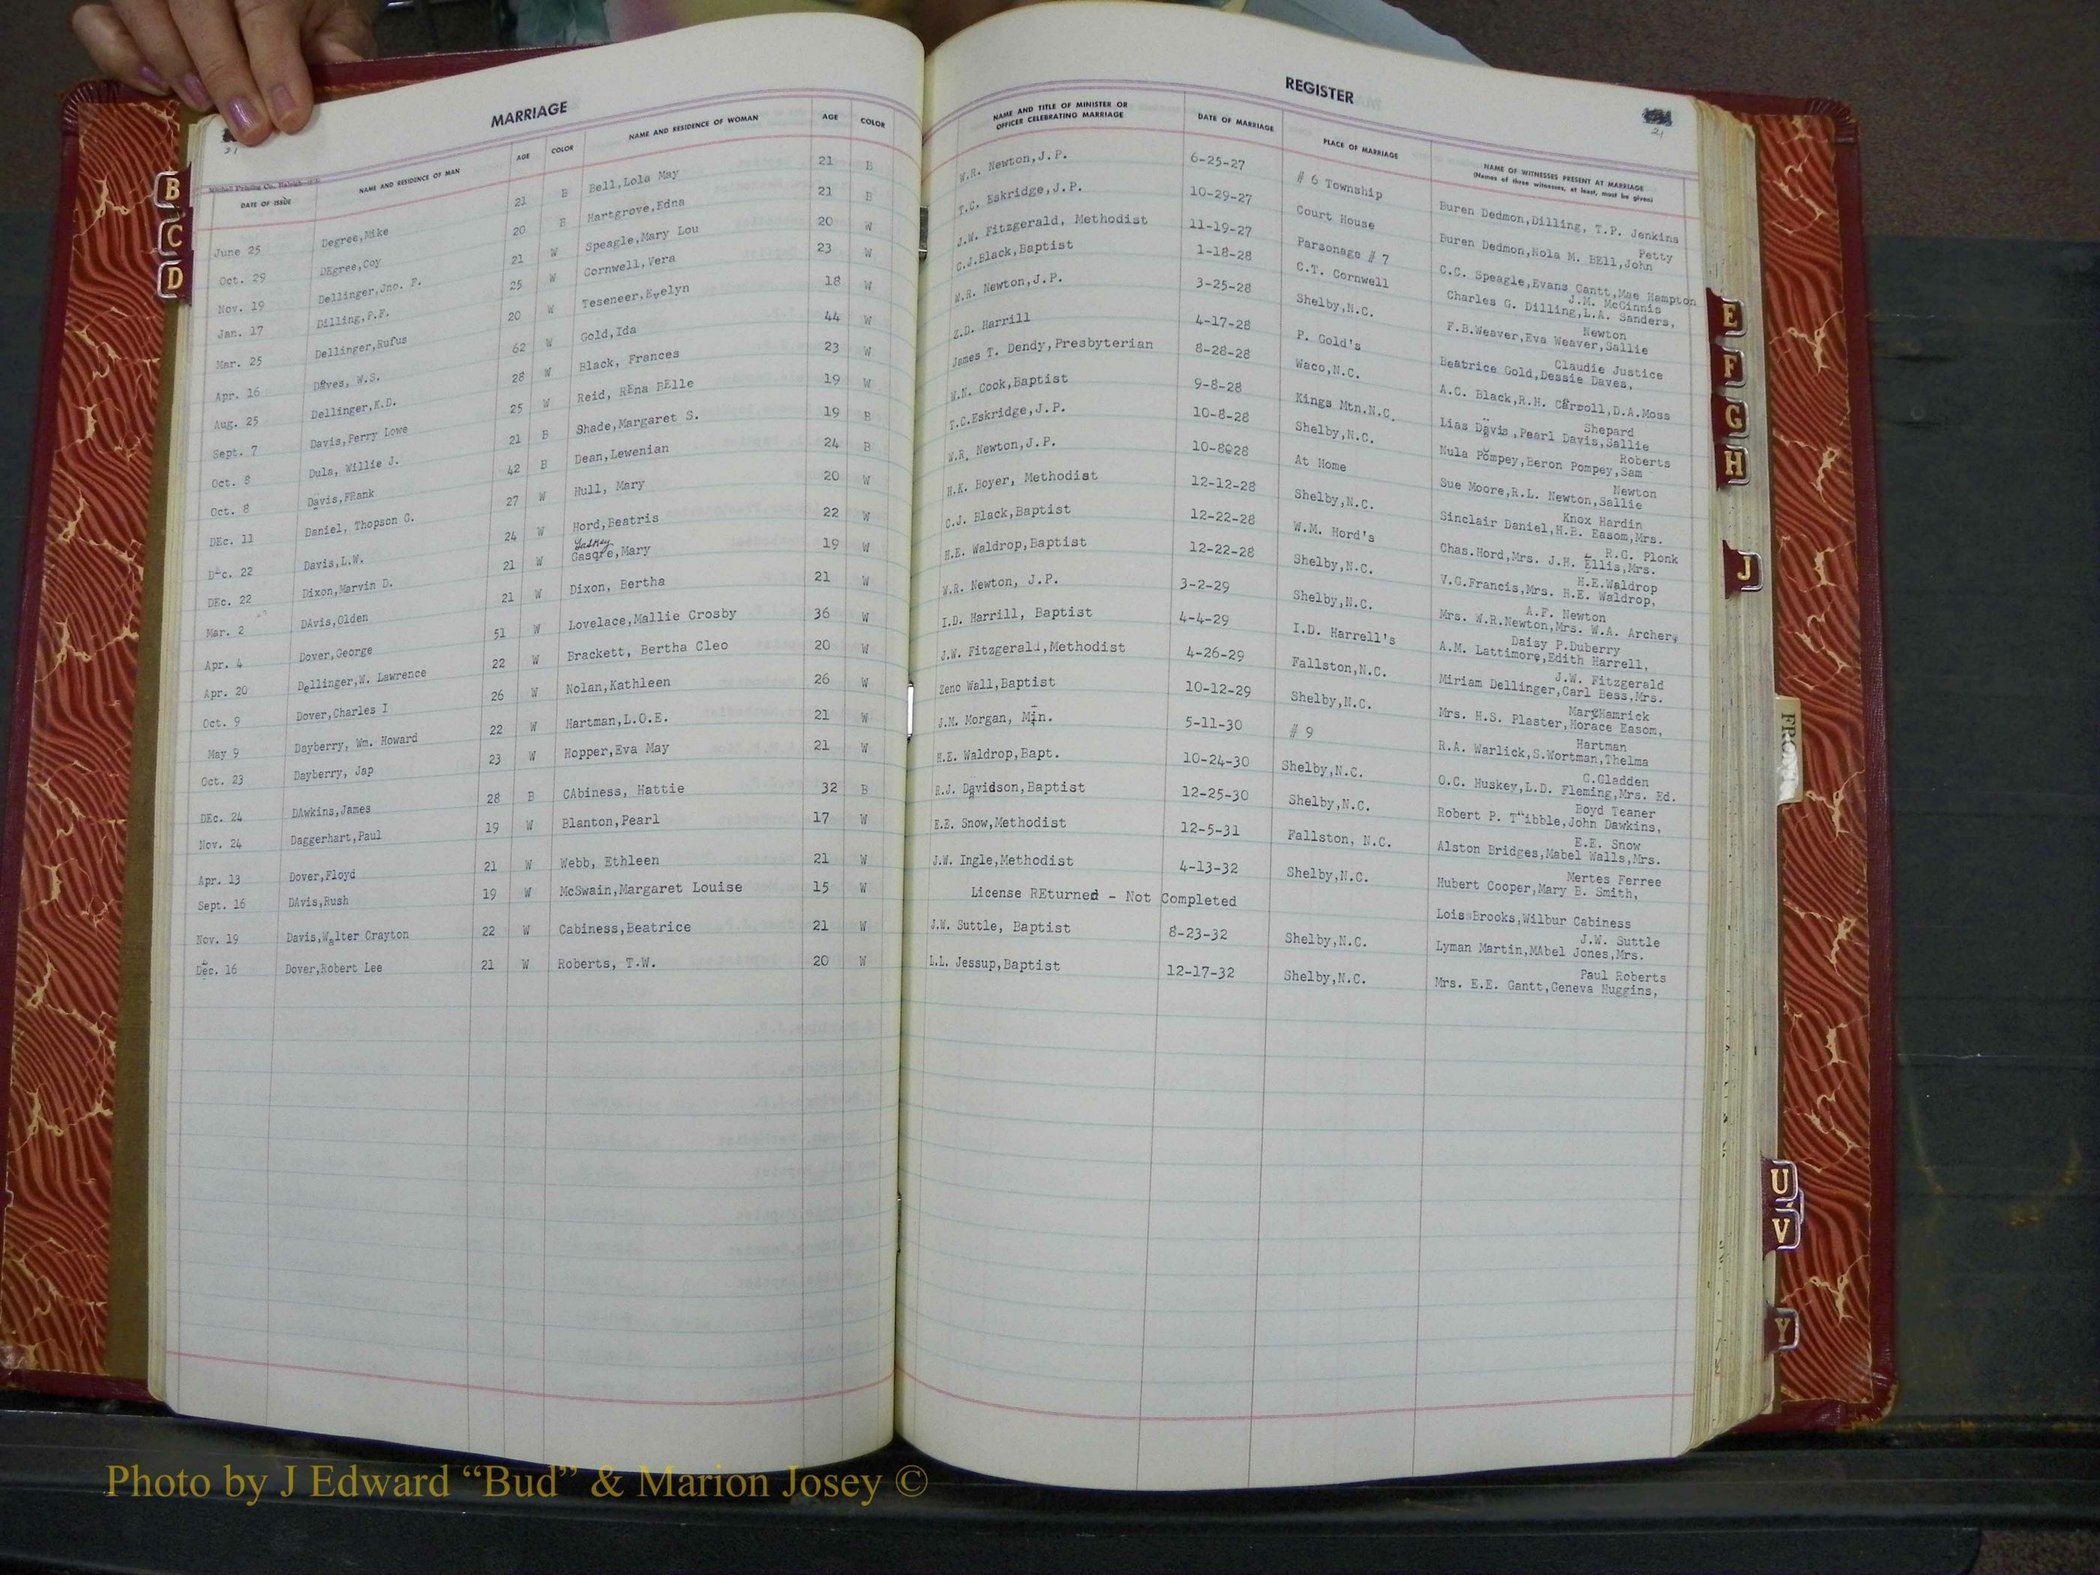 MARRIAGE
21
Mitchell Printing Co. Raleigh
DATE OF ISSUE NAME AND RESIDENCE OF MAN AGE COLOR NAME AND RESIDENCE OF WOMAN AGE COLOR
June 25 Degree,Mike 21 B Bell,Lola May 21 B
Oct. 29 DEgree,Coy 20 B Hartgrove,Edna 21 B
Nov. 19 Dellinger,Jno. F. 21 W Speagle,Mary Lou 20 W
Jan. 17 Dilling,P.F. 25 W Cornwell,Vera 23 W
Mar. 25 Dellinger,Rufus 20 W Teseneer,Evelyn 18 W
Apr. 16 Daves, W.S. 62 W Gold,Ida 44 W
Aug. 25 Dellinger,K.D. 28 W Black, Frances 23 W
Sept. 7 Davis,Perry Lowe 25 W Reid, REna BElle 19 W
Oct. 8 Dula, Willie J. 21 B Shade,Margaret S. 19 B
Oct. 8 Davis,FRank 42 B Dean,Lewenian 24 B
DEc. 11 Daniel, Thopson G. 27 W Hull, Mary 20 W
Dec. 22 Davis,L.W. 24 W Hord,Beatris 22 W
Gaskey
DEc. 22 Dixon,Marvin D. 21 W Gasqre,Mary 19 W
Mar. 2 DAvis,Olden 21 W Dixon, Bertha 21 W
Apr. 4 Dover,George 51 W Lovelace,Mallie Crosby 36 W
Apr. 20 Dellinger,W. Lawrence 22 W Brackett, Bertha Cleo 20 W
Oct. 9 Dover,Charles I 26 W Nolan,Kathleen 26 W
May 9 Dayberry, Wm. Howard 22 W Hartman,L.O.E. 21 W
Oct. 23 Dayberry, Jap 23 W Hopper,Eva May 21 W
DEc. 24 DAwkins,James 28 B CAbiness, Hattie 32 B
Nov. 24 Daggerhart,Paul 19 W Blanton,Pearl 17 W
Apr. 13 Dover,Floyd 21 W Webb, Ethleen 21 W
Sept. 16 DAvis,Rush 19 W McSwain,Margaret Louise 15 W
Nov. 19 Davis,Walter Crayton 22 W Cabiness,Beatrice 21 W
Dec. 16 Dover,Robert Lee 21 W Roberts, T.W. 20 W
REGISTER
21
NAME AND TITLE OF MINISTER OR OFFICER CELEBRATING MARRIAGE DATE OF MARRIAGE PLACE OF MARRIAGE NAME OF WITNESSES PRESENT AT MARRIAGE
(Names of three witnesses, at least, must be given)
W.R. Newton,J.P. 6-25-27 # 6 Township Buren Dedmon,Dilling, T.P. Jenkins
Petty
T.C. Eskridge,J.P. 10-29-27 Court House Buren Dedmon,Nola M. BEll,John
J.W. Fitzgerald, Methodist 11-19-27 Parsonage # 7 C.C. Speagle,Evans Gantt,Mae Hampton
J.M. McGinnis
C.J.Black,Baptist 1-18-28 C.T. Cornwell Charles G. Dilling,L.A. Sanders,
Newton
W.R. Newton,J.P. 3-25-28 Shelby,N.C. F.B.Weaver,Eva Weaver,Sallie
Claudie Justice
Z.D. Harrill 4-17-28 P. Gold's Beatrice Gold,Dessie Daves,
James T. Dendy,Presbyterian 8-28-28 Waco,N.C. A.C. Black,R.H. Carroll,D.A.Moss
Shepard
W.N. Cook,Baptist 9-8-28 Kings Mtn.N.C. Lias Davis,Pearl Davis,Sallie
Roberts
T.C.Eskridge,J.P. 10-8-28 Shelby,N.C. Nula Pompey,Beron Pompey,Sam
Newton
W.R. Newton,J.P. 10-8@28 At Home Sue Moore,R.L. Newton,Sallie
Knox Hardin
H.K. Boyer, Methodist 12-12-28 Shelby,N.C. Sinclair Daniel,H.B. Easom,Mrs.
R.G. Plonk
C.J. Black,Baptist 12-22-28 W.M. Hord's Chas.Hord,Mrs. J.H. Ellis,Mrs.
H.E.Waldrop
H.E. Waldrop,Baptist 12-22-28 Shelby,N.C. V.G.Francis,Mrs. H.E. Waldrop,
A.F. Newton
W.R. Newton, J.P. 3-2-29 Shelby,N.C. Mrs. W.R.Newton,Mrs. W.A. Archer,
Daisy P.Duberry
I.D. Harrill, Baptist 4-4-29 I.D. Harrell's A.M. Lattimore,Edith Harrell,
J.W. Fitzgerald
J.W. Fitzgerald,Methodist 4-26-29 Fallston,N.C. Miriam Dellinger,Carl Bess,Mrs.
Mary Hamrick
Zeno Wall,Baptist 10-12-29 Shelby,N.C. Mrs. H.S. Plaster,Horace Easom,
Hartman
J.M. Morgan, Min. 5-11-30 # 9 R.A. Warlick,S.Wortman,Thelma
G.Gladden
H.E. Waldrop,Bapt. 10-24-30 Shelby,N.C. O.C. Huskey,L.D. Fleming,Mrs. Ed.
Boyd Teaner
R.J. Davidson,Baptist 12-25-30 Shelby,N.C. Robert P. T"ibble,John Dawkins,
E.E. Snow
E.E. Snow,Methodist 12-5-31 Fallston, N.C. Alston Bridges,Mabel Walls,Mrs.
Mertes Ferree
J.W. Ingle,Methodist 4-13-32 Shelby,N.C. Hubert Cooper,Mary B. Smith,
License REturned - Not Completed
Lois Brooks,Wilbur Cabiness
J.W. Suttle
J.W. Suttle, Baptist 8-23-32 Shelby,N.C. Lyman Martin,MAbel Jones,Mrs.
Paul Roberts
L.L. Jessup,Baptist 12-17-32 Shelby,N.C. Mrs. E.E. Gantt,Geneva Huggins,
B
C
D
E
F
G
H
J
FRONT
U
V
Y
Photo by J Edward “Bud” & Marion Josey ©